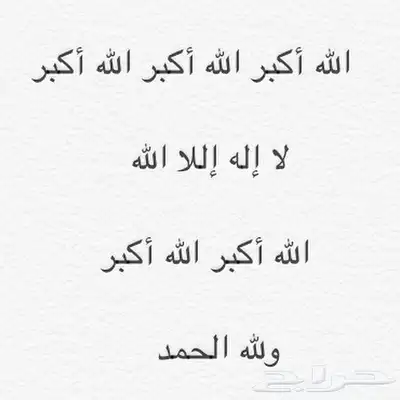 الله أكبر الله أكبر الله أكبر
لا إله إللا الله
الله أكبر الله أكبر
ولله الحمد
حراج